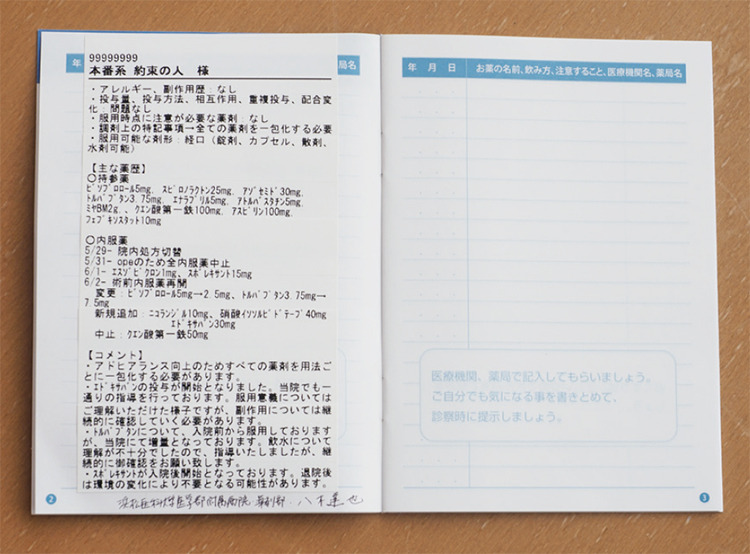 年
局名
99999999
本番系 約束の人 様
・アレルギー、副作用歴：なし
・投与量、投与方法、相互作用、重複投与、配合変
化：問題なし
・服用時点に注意が必要な薬剤：なし
・調剤上の特記事項→全ての薬剤を一包化する必要
・服用可能な剤形：経口（錠剤、カプセル、散剤、
水剤可能）
【主な薬歴】
○持参薬
ﾋﾞｿﾌﾟﾛﾛｰﾙ5mg, ｽﾋﾟﾛﾉﾗｸﾄﾝ25mg, ｱｿﾞｾﾐﾄﾞ30mg,
ﾄﾙﾊﾞﾌﾟﾀﾝ3.75mg, ｴﾅﾗﾌﾟﾘﾙ5mg, ｱﾄﾙﾊﾞｽﾀﾁﾝ5mg,
ﾐﾔBM2g,、ｸｴﾝ酸第一鉄100mg, ｱｽﾋﾟﾘﾝ100mg,
ﾌｪﾌﾞｷｿｽﾀｯﾄ10mg
○内服薬
5/29- 院内処方切替
5/31- opeのため全内服薬中止
6/1- ｴｽｿﾞﾋﾟｸﾛﾝ1mg、ｽﾎﾞﾚｷｻﾝﾄ15mg
6/2- 術前内服薬再開
変更：ﾋﾞｿﾌﾟﾛﾛｰﾙ5mg→2.5mg、ﾄﾙﾊﾞﾌﾟﾀﾝ3.75mg→
7.5mg
新規追加：ﾆｺﾗﾝｼﾞﾙ10mg、硝酸ｲｿｿﾙﾋﾞﾄﾞﾃｰﾌﾟ40mg
ｴﾄﾞｷｻﾊﾞﾝ30mg
中止：ｸｴﾝ酸第一鉄50mg
【コメント】
・アドヒアランス向上のためすべての薬剤を用法ご
とに一包化する必要があります。
・ｴﾄﾞｷｻﾊﾞﾝの投与が開始となりました。当院でも一
通りの指導を行っております。服用意義については
ご理解いただけた様子ですが、副作用については継
続的に確認していく必要があります。
・ﾄﾙﾊﾞﾌﾟﾀﾝについて、入院前から服用しております
が、当院にて増量となっております。飲水について
理解が不十分でしたので、指導いたしましたが、継
続的に御確認をお願い致します。
・ｽﾎﾞﾚｷｻﾝﾄが入院後開始となっております。退院後
は環境の変化により不要となる可能性があります。
浜松医科大学医学部附属病院 薬剤部 八木達也
2
年 月 日 お薬の名前、飲み方、注意すること、医療機関名、薬局名
医療機関、薬局で記入してもらいましょう。
ご自分でも気になる事を書きとめて、
診察時に提示しましょう。
3